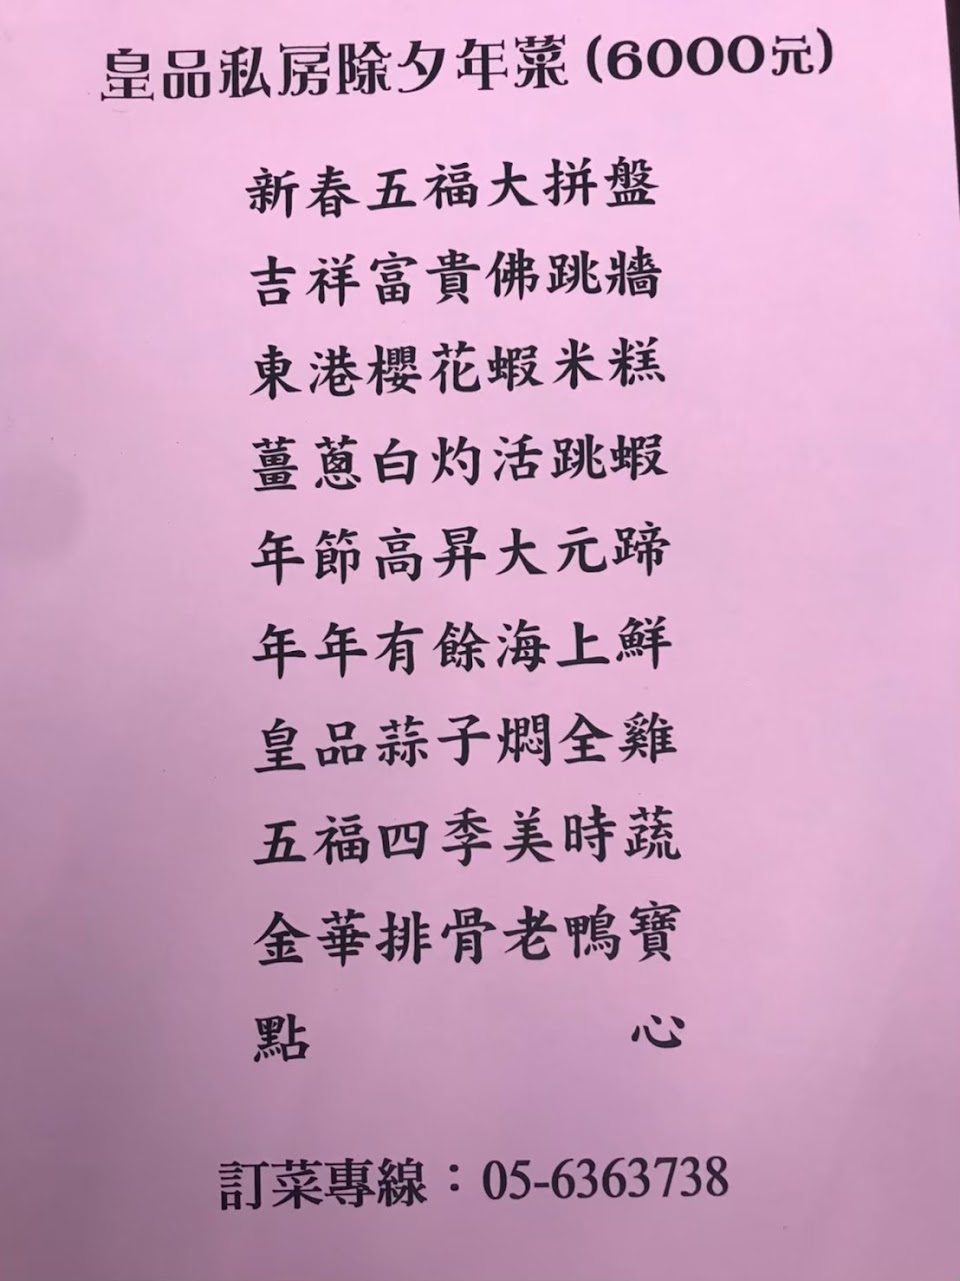 皇品私房除夕年菜(6000元)
新春五福大拼盤
吉祥富貴佛跳牆
東港櫻花蝦米糕
薑蔥白灼活跳蝦
年節高昇大元蹄
年年有餘海上鮮
皇品蒜子燜全雞
五福四季美時蔬
金華排骨老鴨寶
點心
訂菜專線：05-6363738